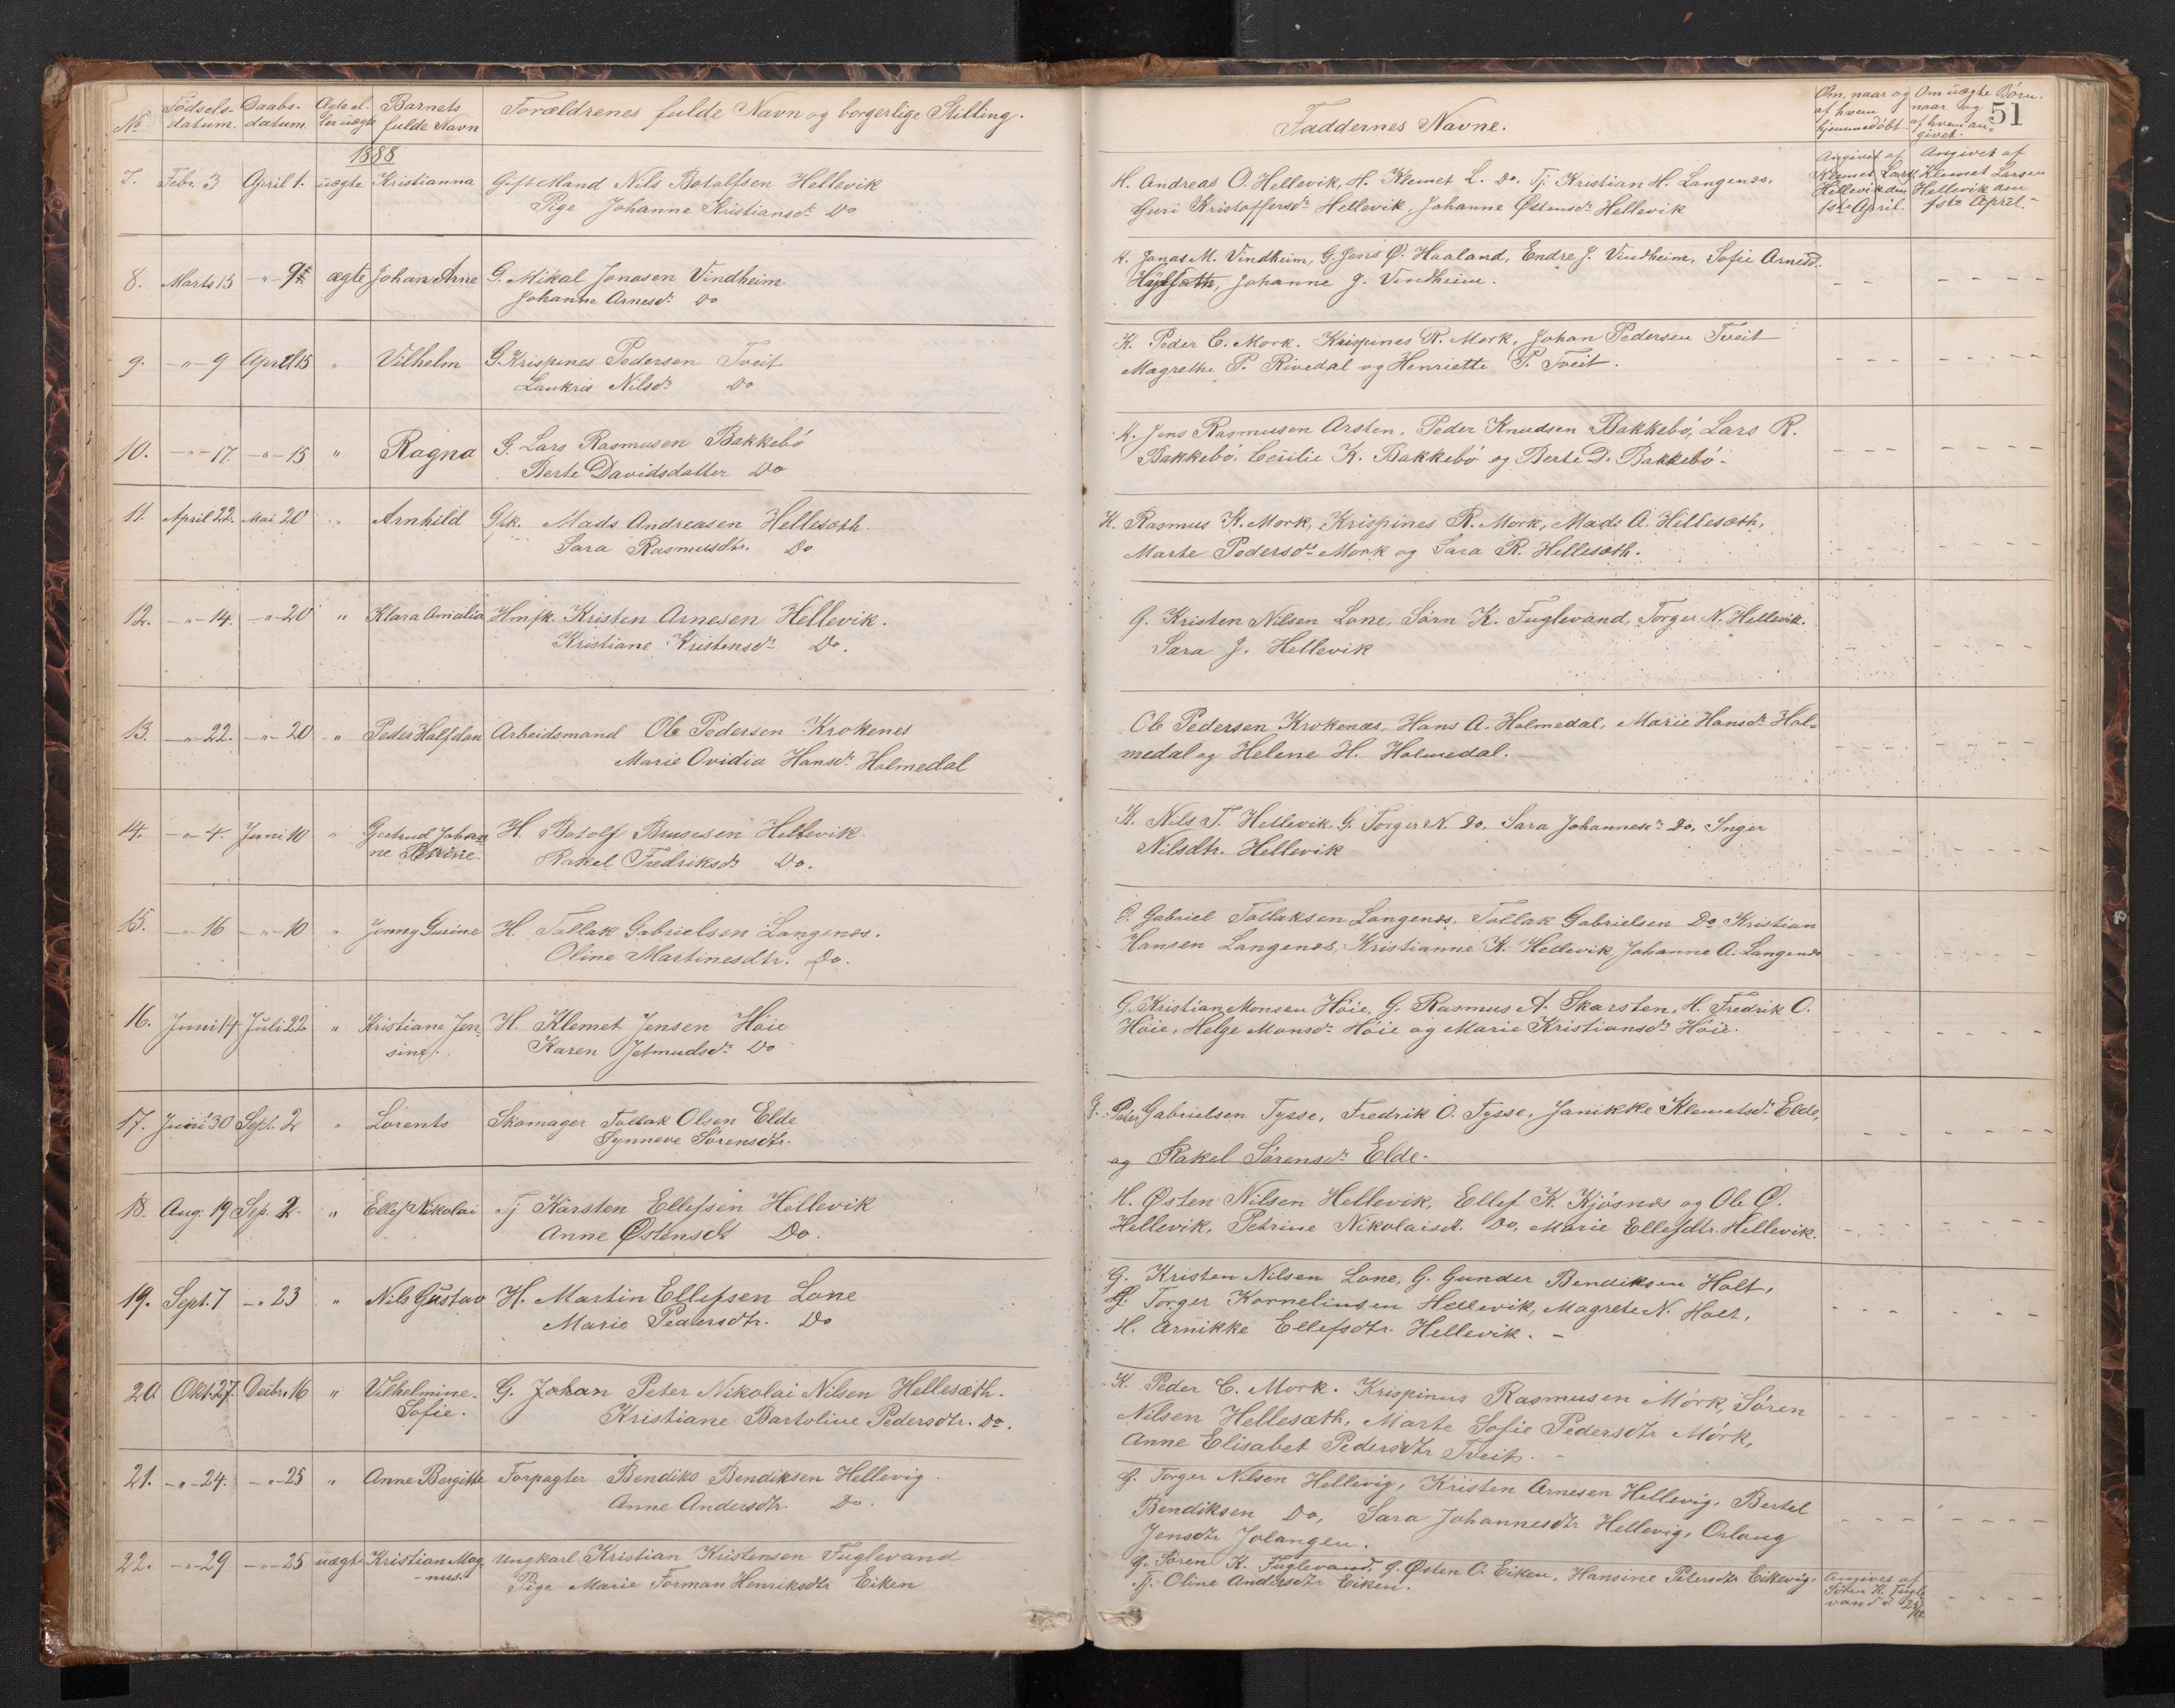 No. Fødsels-datum. Daabs-datum. Ægte el-ler uægte Barnets fulde Navn Forældrenes fulde Navn og borgerlige Stilling.
Faddernes Navne. Om, naar og af hvem hjemmedøbt Om uægte Børn, naar og af hvem an-givet. 51
1888
7. Febr. 3 April 1. uægte Kristianna Gift Mand Nils Botolfsen Hellevik
Pige Johanne Kristiansdr. Do
H. Andreas O. Hellevik, H. Klemet L. Do, Tj. Kristian H. Langenæs,
Guri Kristoffersdr. Hellevik, Johanne Østensdr. Hellevik
Angivet af Klemet Lars. Hellevik den 1ste April.
Angivet af Klemet Larsen Hellevik den 1ste April.
8. Marts 15 -"- ægte Johan Arne G. Mikal Jonasen Vindheim
Johanne Arnesdr. Do
K. Jonas M. Vindheim, G. Jens Ø. Haaland, Endre J. Vindheim, Sofie Arnesd.
Johanne J. Vindheim.
9. -"- 9 April 15 " Vilhelm G. Krispines Pedersen Tveit
Laukris Nilsdr. Do
K. Peder C. Mork. Krispines R. Mork, Johan Pedersen Tveit
Magrethe P. Rivedal og Henriette P. Tveit.
10. -"- 17. -"- 15 " Ragna G. Lars Rasmusen Bakkebø
Berte Davidsdatter Do
K. Jens Rasmusen Arsten, Peder Knudsen Bakkebø, Lars R.
Bakkebø. Cecilie K. Bakkebø og Berte D. Bakkebø.
11. April 22. Mai 20 " Arnhild Gbk. Mads Andreasen Hellesæth.
Sara Rasmusdtr. Do
K. Rasmus K. Mork, Krispines R. Mork, Mads A. Hellesæth,
Marte Pedersdr. Mork og Sara R. Hellesæth.
12. -"- 14. -"- 20 " Klara Amalia Hmfk. Kristen Arnesen Hellevik.
Kristiane Kristensdr. Do.
G. Kristen Nilsen Lone, Sørn K. Fuglevand, Torger N. Hellevik.
Sara J. Hellevik
13. -"- 22. -"- 20 " Peder Halfdan Arbeidsmand Ole Pedersen Krokenes
Marie Ovidia Hansdr. Holmedal
Ole Pedersen Krokenæs, Hans A. Holmedal, Marie Hansdr. Hol-
medal og Helene H. Holmedal.
14. -"- 4. Juni 10 " Gertrud Johan- H. Botolf Brusesen Hellevik
ne Petrine. Rakel Fredriksdr. Do.
K. Nils T. Hellevik, G. Torger N. Do, Sara Johannesdr. Do, Inger
Nilsdtr. Hellevik
15. -"- 16 -"- 10 " Jenny Gurine H. Tollak Gabrielsen Langenæs.
Oline Martinesdtr. Do.
G. Gabriel Tollaksen Langenæs, Tollak Gabrielsen Do, Kristian
Hansen Langenæs, Kristianne K. Hellevik, Johanne A. Langenæs
16. Juni 14 Juli 22 " Kristiane Jen- H. Klemet Jensen Høie
sine. Karen Jetmundsdr. Do
G. Kristian Monsen Høie, G. Rasmus A. Skarsten, H. Fredrik O.
Høie, Helge Monsdr. Høie og Marie Kristiansdr. Høie.
17. Juni 30 Sept. 2 " Lorents Skomager Tollak Olsen Elde
Synneve Sørensdtr.
G. Peter Gabrielsen Tysse, Fredrik O. Tysse, Janikke Klemetsdr. Elde,
og Rakel Sørensdr. Elde.
18. Aug. 19 Sep. 2. " Ellef Nikolai Tj Karsten Ellefsen Hellevik
Anne Østensdt Do.
H. Østen Nilsen Hellevik, Ellef K. Kjøsnæs og Ole Ø.
Hellevik, Petrine Nikolaisdt. Do, Marie Ellefsdtr. Hellevik.
19. Sept. 7 -"- 23 " Nils Gustav H. Martin Ellefsen Lone
Marie Pedersdtr. Do
G. Kristen Nilsen Lone, G. Gunder Bendiksen Holt,
G. Torger Korneliusen Hellevik, Magrete N. Holt,
H. Arnikke Ellefsdtr. Hellevik.
20. Okt. 27. Decbr. 16 " Vilhelmine G. Johan Peter Nikolai Nilsen Hellesæth.
Sofie. Kristiane Bartoline Pedersdtr. Do.
K. Peder C. Mork. Krispinus Rasmusen Mørk, Søren
Nilsen Hellesæth, Marte Sofie Pedersdtr Mørk,
Anne Elisabet Pedersdtr Tveit.
21. -"- 24. -"- 25 " Anne Bergitte Forpagter Bendiks Bendiksen Hellevig
Anne Andersdtr. Do.
G. Torger Nilsen Hellevig, Kristen Arnesen Hellevig, Bertel
Bendiksen Do, Sara Johannesdtr Hellevig, Orlaug
Jensdtr Jolangen.
22. -"- 29 -"- 25 uægte Kristian Mag- Ungkarl Kristian Kristensen Fuglevand
nus. Pige Marie Forman Henriksdtr Eiken
G. Søren K. Fuglevand, G. Østen O. Eiken, Hansine Petersdtr Eikevig,
Tj. Oline Andersdtr Eiken.
Angivet af Søren K. Fugle-vand d. 29/12